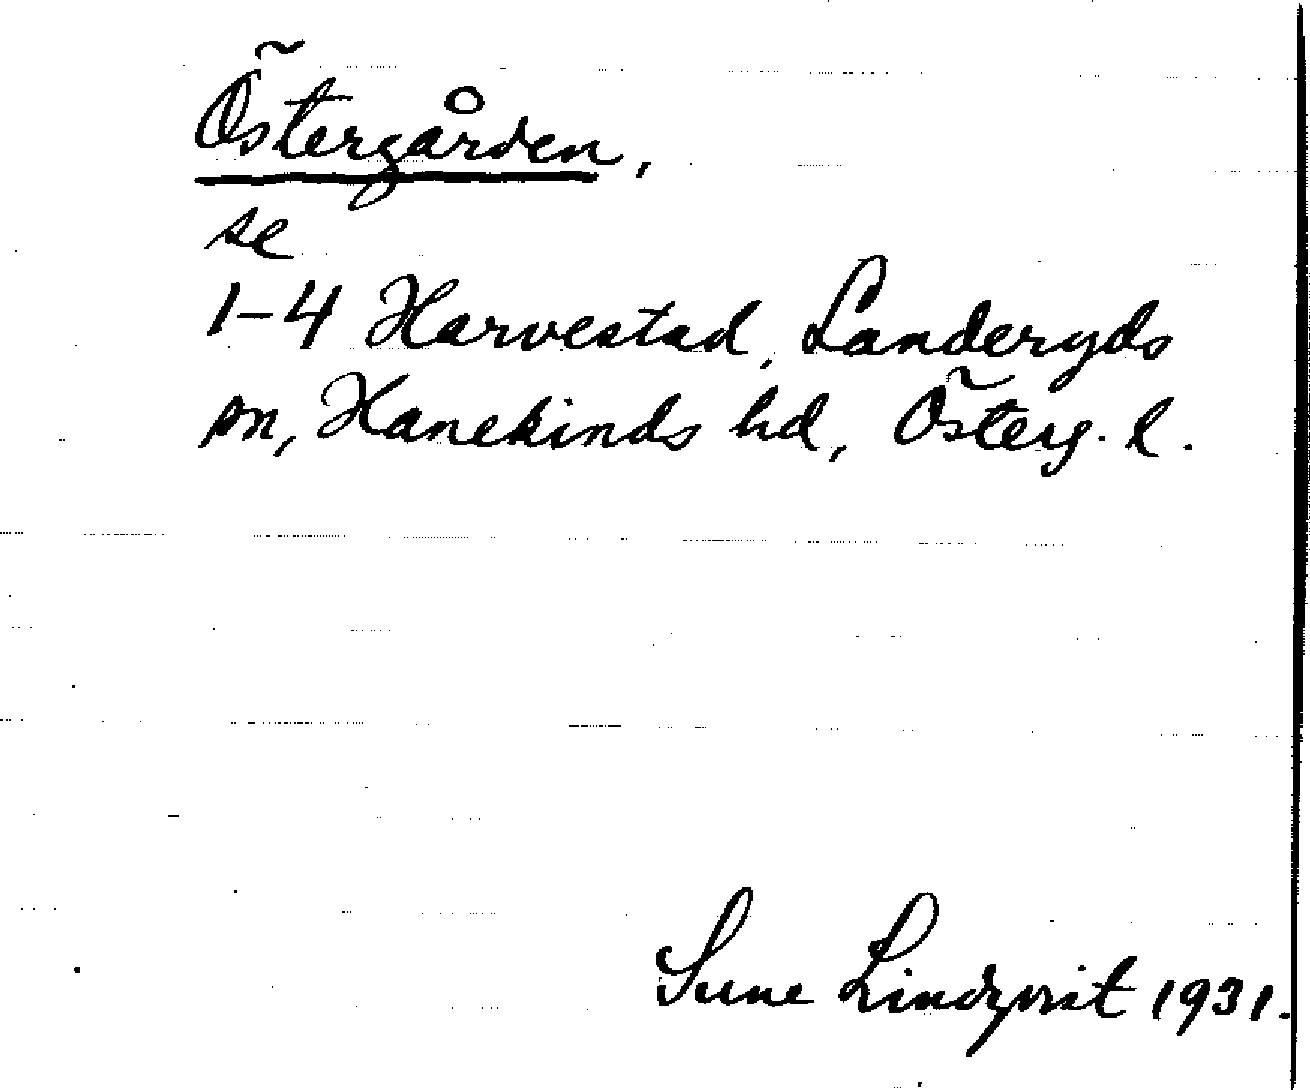 Östergården,
se
1-4 Harvestad, Landeryds
sn, Hanekinds hd, Österg. l.
Sune Lindqvist 1931.